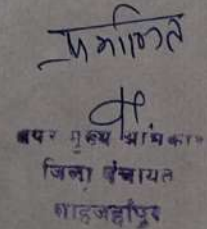 प्रमाणित
अपर मुख्य अधिकारी
जिला पंचायत
शाहजहाँपुर